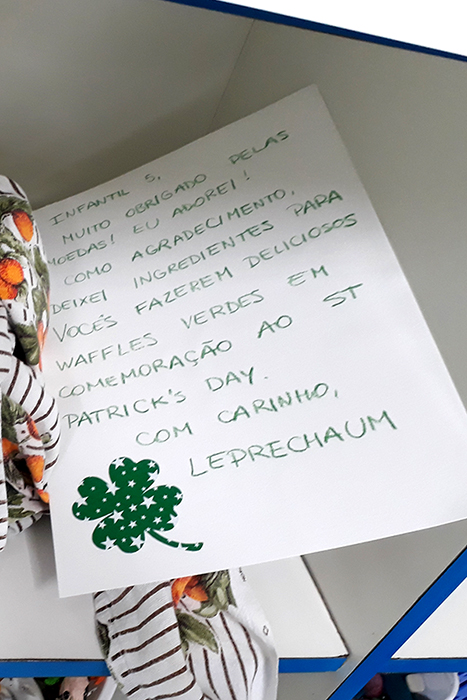 INFANTIL 5,
MUITO OBRIGADO PELAS
MOEDAS! EU ADOREI!
COMO AGRADECIMENTO,
DEIXEI INGREDIENTES PARA
VOCÊS FAZEREM DELICIOSOS
WAFFLES VERDES EM
COMEMORAÇÃO AO ST
PATRICK'S DAY.
COM CARINHO,
LEPRECHAUM